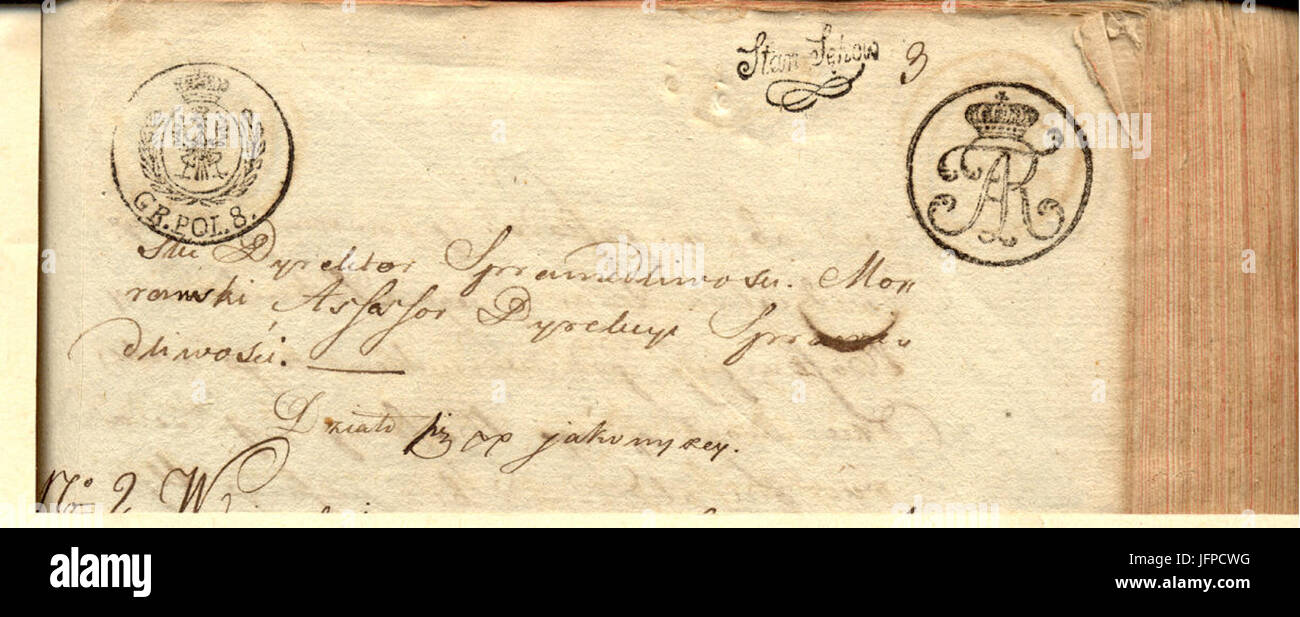 Stan Sęhow 3
GR. POL. 8.
AR
Dyrektor Sprawiedliwości. Mor
rawski Assessor Dyrekcyi Sprawie
dliwości.
Działo się jak wyżey.
No 2 W
alamy
Image ID: JFPCWG
www.alamy.com